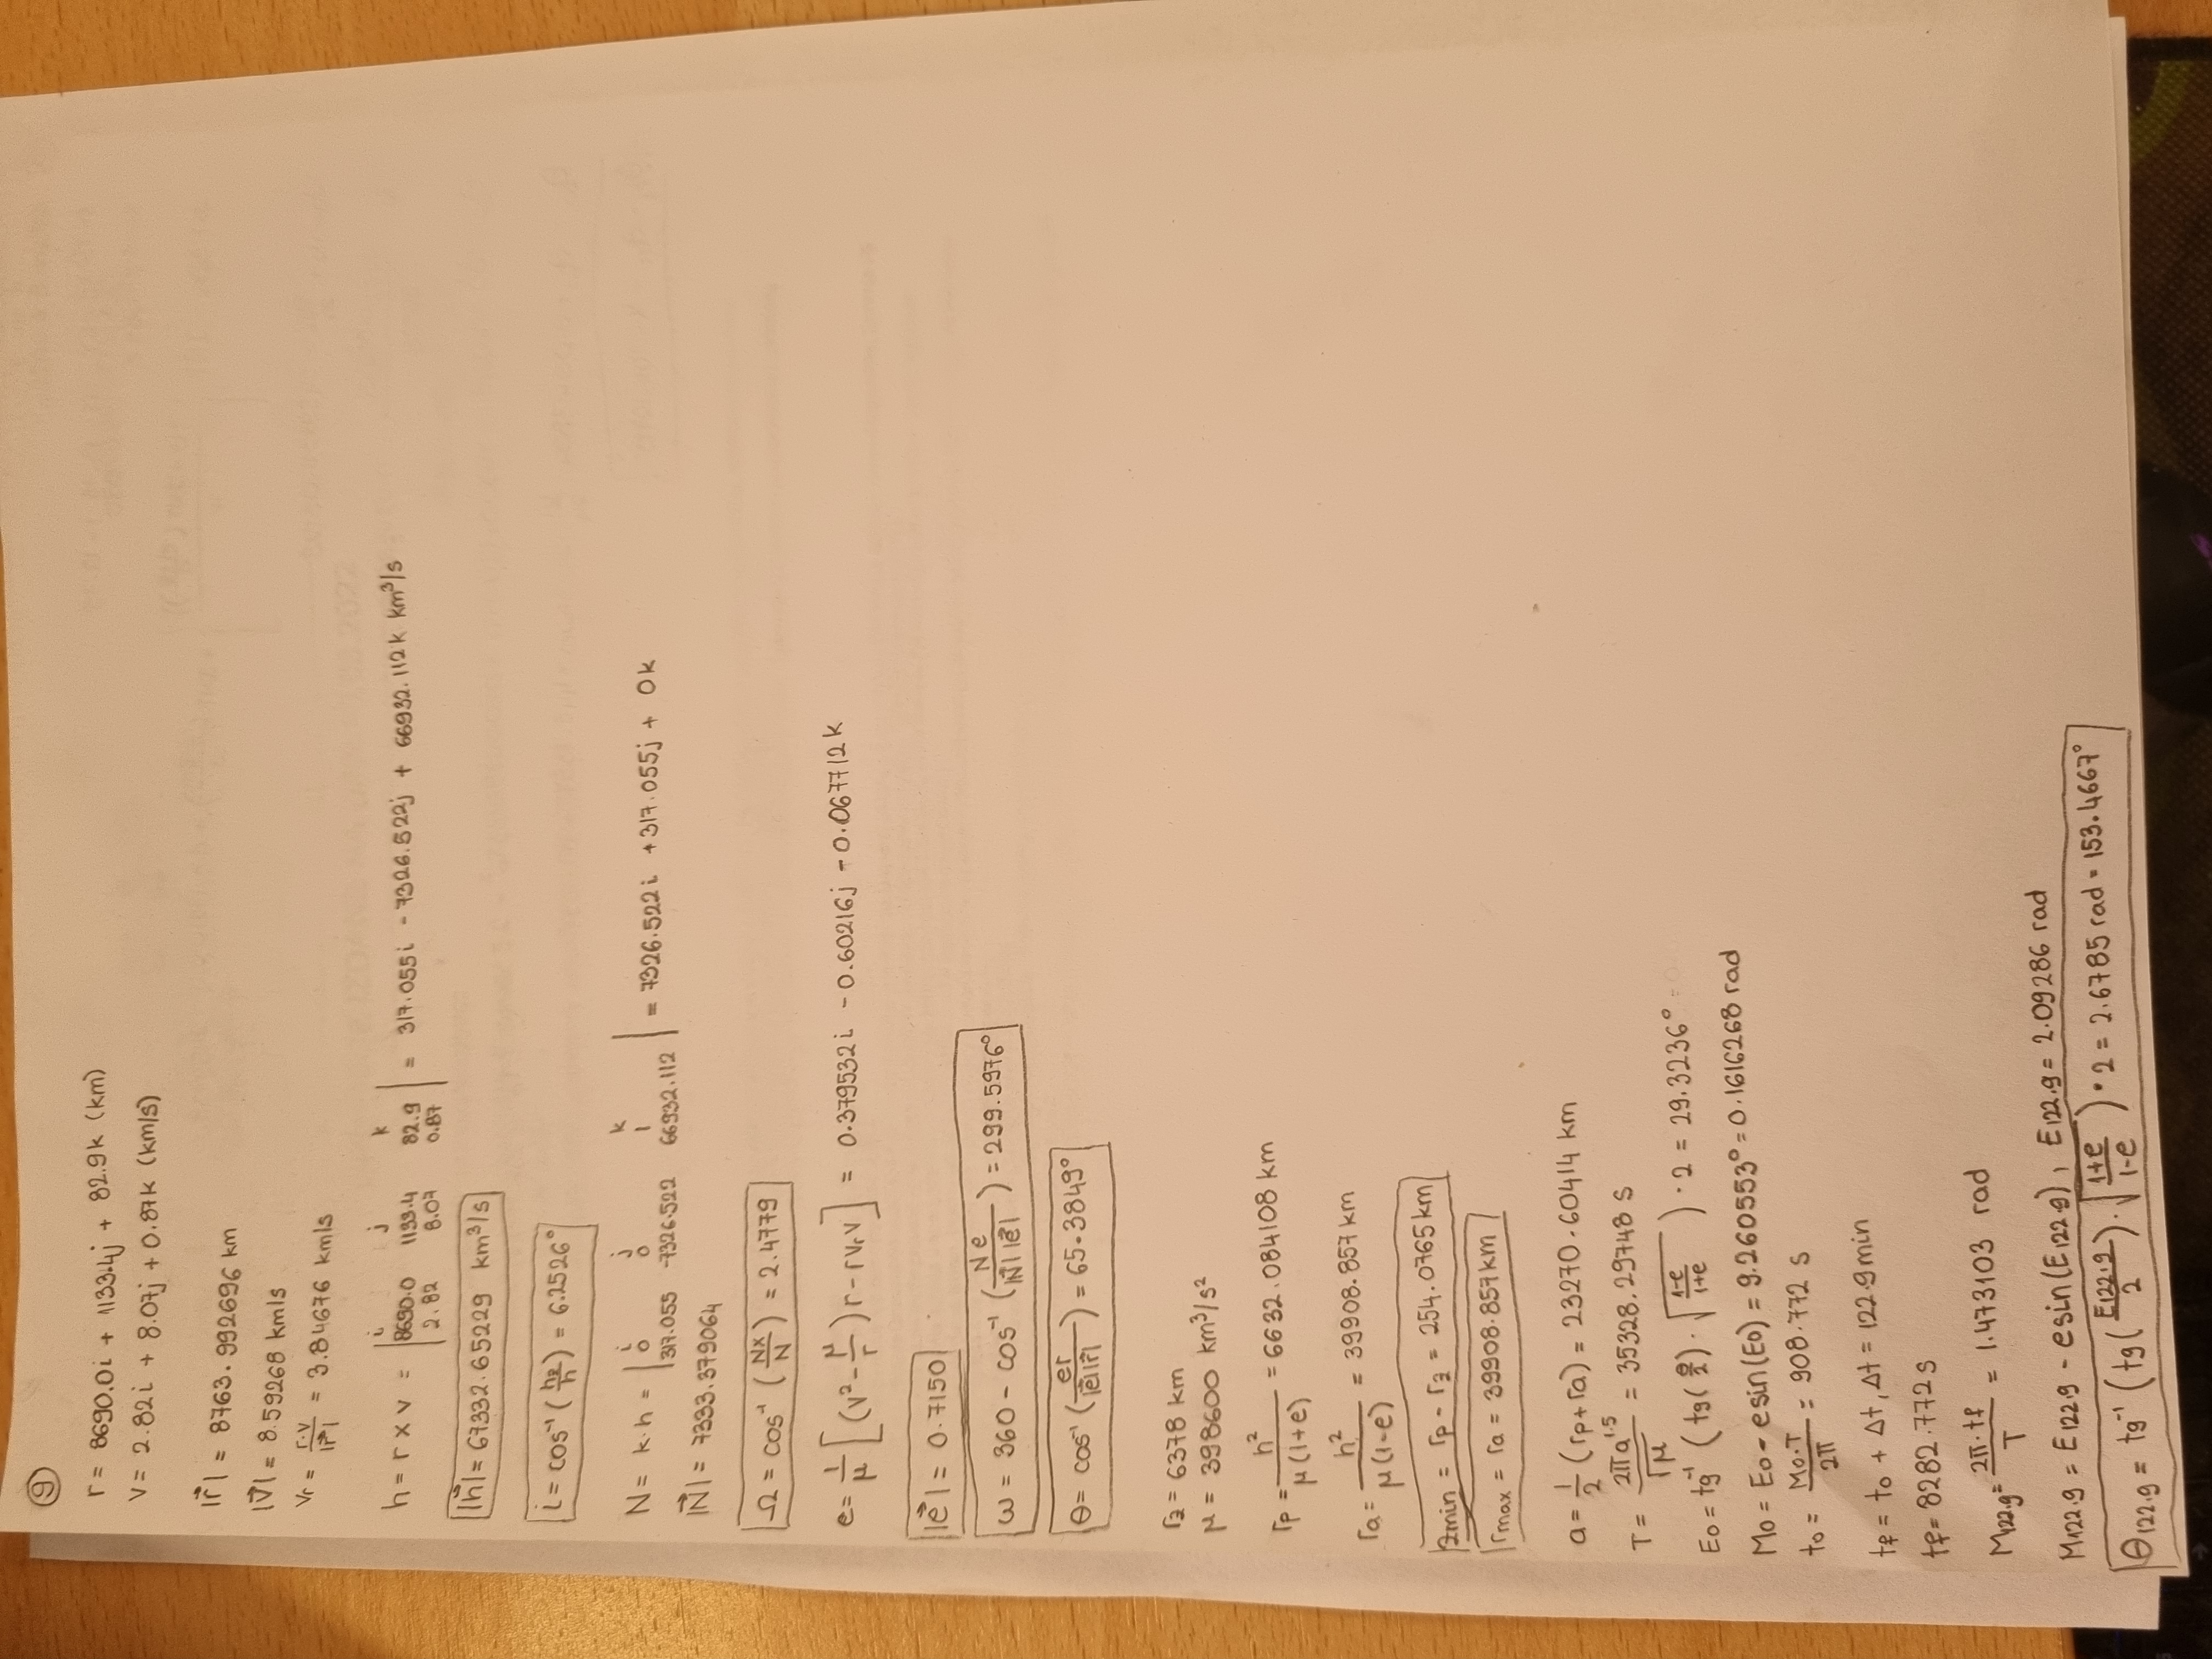 9
r = 8690.0i + 1133.4j + 82.9k (km)
v = 2.82i + 8.07j + 0.87k (km/s)
|r⃗| = 8763.992696 km
|V⃗| = 8.59268 km/s
Vr = r·v / |r⃗| = 3.84676 km/s
h = r x v = | i j k |
| 8690.0 1133.4 82.9 | = 317.055i - 7326.522j + 66932.112k km³/s
| 2.82 8.07 0.87 |
|h⃗| = 67332.65229 km³/s
i = cos⁻¹ (hz/h) = 6.2526°
N = k·h = | i j k |
| 0 0 1 |
| 317.055 -7326.522 66932.112 | = 7326.522i + 317.055j + 0k
|N⃗| = 7333.379064
Ω = cos⁻¹ (Nx/N) = 2.4779
e = 1/μ [(v² - μ/r) r - rvrv] = 0.379532i - 0.60216j - 0.067712k
|e⃗| = 0.7150
ω = 360 - cos⁻¹ (Ne / |N⃗||e⃗|) = 299.5976°
θ = cos⁻¹ (er / |e⃗||r⃗|) = 65.3849°
rz = 6378 km
μ = 398600 km³/s²
rp = h² / μ(1+e) = 6632.084108 km
ra = h² / μ(1-e) = 39908.857 km
zmin = rp - rz = 254.0765 km
rmax = ra = 39908.857 km
a = 1/2 (rp + ra) = 23270.60414 km
T = 2πa^1.5 / √μ = 35328.29748 s
E0 = tg⁻¹ (tg(θ/2) · √(1-e / 1+e)) · 2 = 29.3236°
M0 = E0 - esin(E0) = 9.260553° = 0.1616268 rad
t0 = M0·T / 2π = 908.772 s
tf = t0 + Δt, Δt = 122.9 min
tf = 8282.772 s
M122.9 = 2π·tf / T = 1.473103 rad
M122.9 = E122.9 - esin(E122.9), E122.9 = 2.09286 rad
θ122.9 = tg⁻¹ (tg(E122.9 / 2) · √(1+e / 1-e)) · 2 = 2.6785 rad = 153.4667°